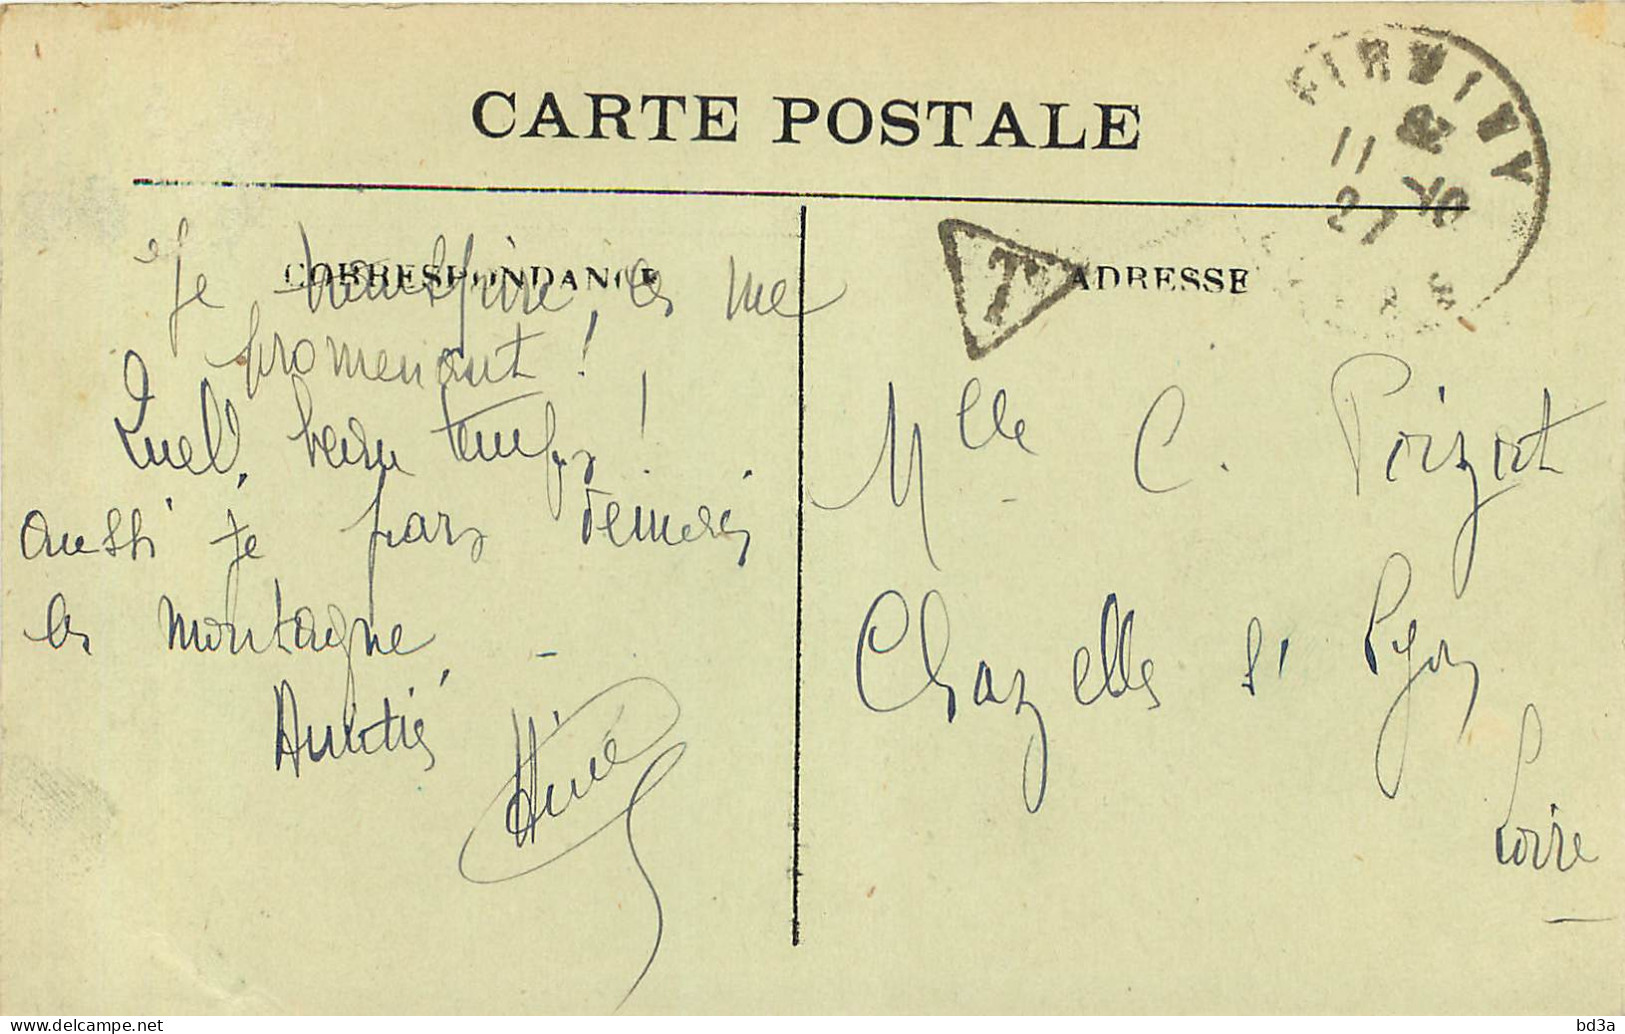 CARTE POSTALE
CORRESPONDANCE
ADRESSE
FIRMINY
11
27 10
T
Je en me
promenant !
Quel beau temps !
aussi je pars demain
la montagne,
Amitiés
Mlle C. Poizat
Chazelle s/ Lyon
Loire
delcampe.net
bd3a